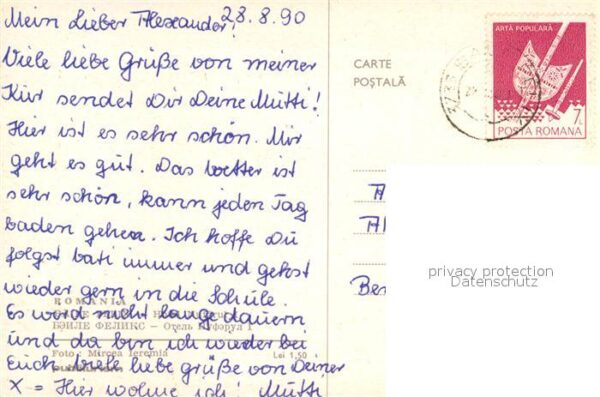 Mein Lieber Alexander! 28.8.90
Viele liebe Grüße von meiner
Kur sendet Dir Deine Mutti!
Hier ist es sehr schön. Mir
geht es gut. Das Wetter ist
sehr schön, kann jeden Tag
baden gehen. Ich hoffe Du
folgst Vati immer und gehst
wieder gern in die Schule.
ROMANIA
Es wird nicht lange dauern
БЭИЛЕ ФЕЛИКС – Отель
und da bin ich wieder bei
Foto: Mircea Ieremia
Lei 1,50
Euch. Viele liebe Grüße von Deiner
X = Hier wohne ich! Mutti
CARTE
POȘTALĂ
ARTĂ POPULARĂ
7L
POSTA ROMANA
privacy protection
Datenschutz
A
Al
Be